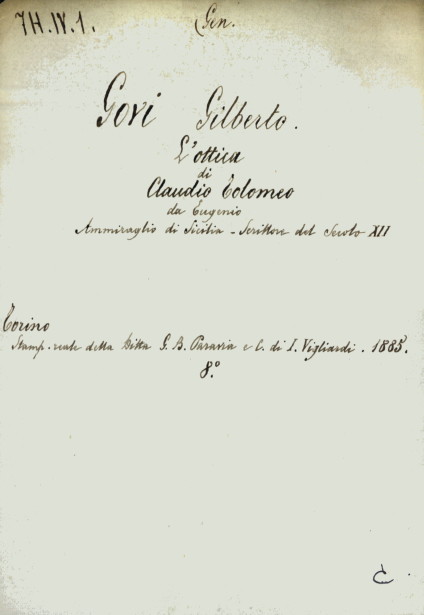 7H.IV.1.
Gen.
Govi Gilberto.
L'ottica
di
Claudio Tolomeo
da Eugenio
Ammiraglio di Sicilia - Scrittore del Secolo XII
Torino
Stamp. reale della Ditta G. B. Paravia e C. di I. Vigliardi. 1885.
8º
C.